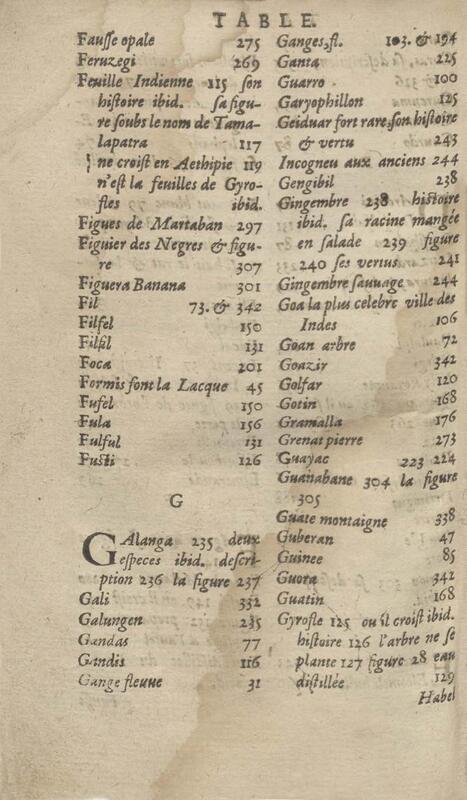 TABLE.
Fausse opale 275
Feruzegi 269
Feuille Indienne 115 son
histoire ibid. sa figu-
re soubs le nom de Tama-
lapatra 117
ne croist en Aethipie 119
n'est la feuilles de Gyro-
fles ibid.
Figues de Martaban 297
Figuier des Negres & figu-
re 307
Figuera Banana 301
Fil 73. & 342
Filfel 150
Filfil 131
Foca 201
Formis font la Lacque 45
Fufel 150
Fula 156
Fulful 131
Fusti 126
G
GAlanga 235 deux
especes ibid. descri-
ption 236 la figure 237
Gali 332
Galungen 235
Gandas 77
Gandis 116
Gange fleuue 31
Ganges, fl. 103. & 194
Ganta 225
Guarro 100
Garyophillon 125
Geiduar fort rare, son histoire
& vertu 243
Incogneu aux anciens 244
Gengibil 238
Gingembre 238 histoire
ibid. sa racine mangée
en salade 239 figure
240 ses vertus 241
Gingembre sauuage 244
Goa la plus celebre ville des
Indes 106
Goan arbre 72
Goazir 342
Golfar 120
Gotin 168
Gramalla 176
Grenat pierre 273
Guayac 223 224
Guanabane 304 la figure
305
Guate montaigne 338
Guberan 47
Guinee 85
Guora 342
Guatin 168
Gyrofle 125 ou il croist ibid.
histoire 126 l'arbre ne se
plante 127 figure 28 eau
distillée 129
Habel